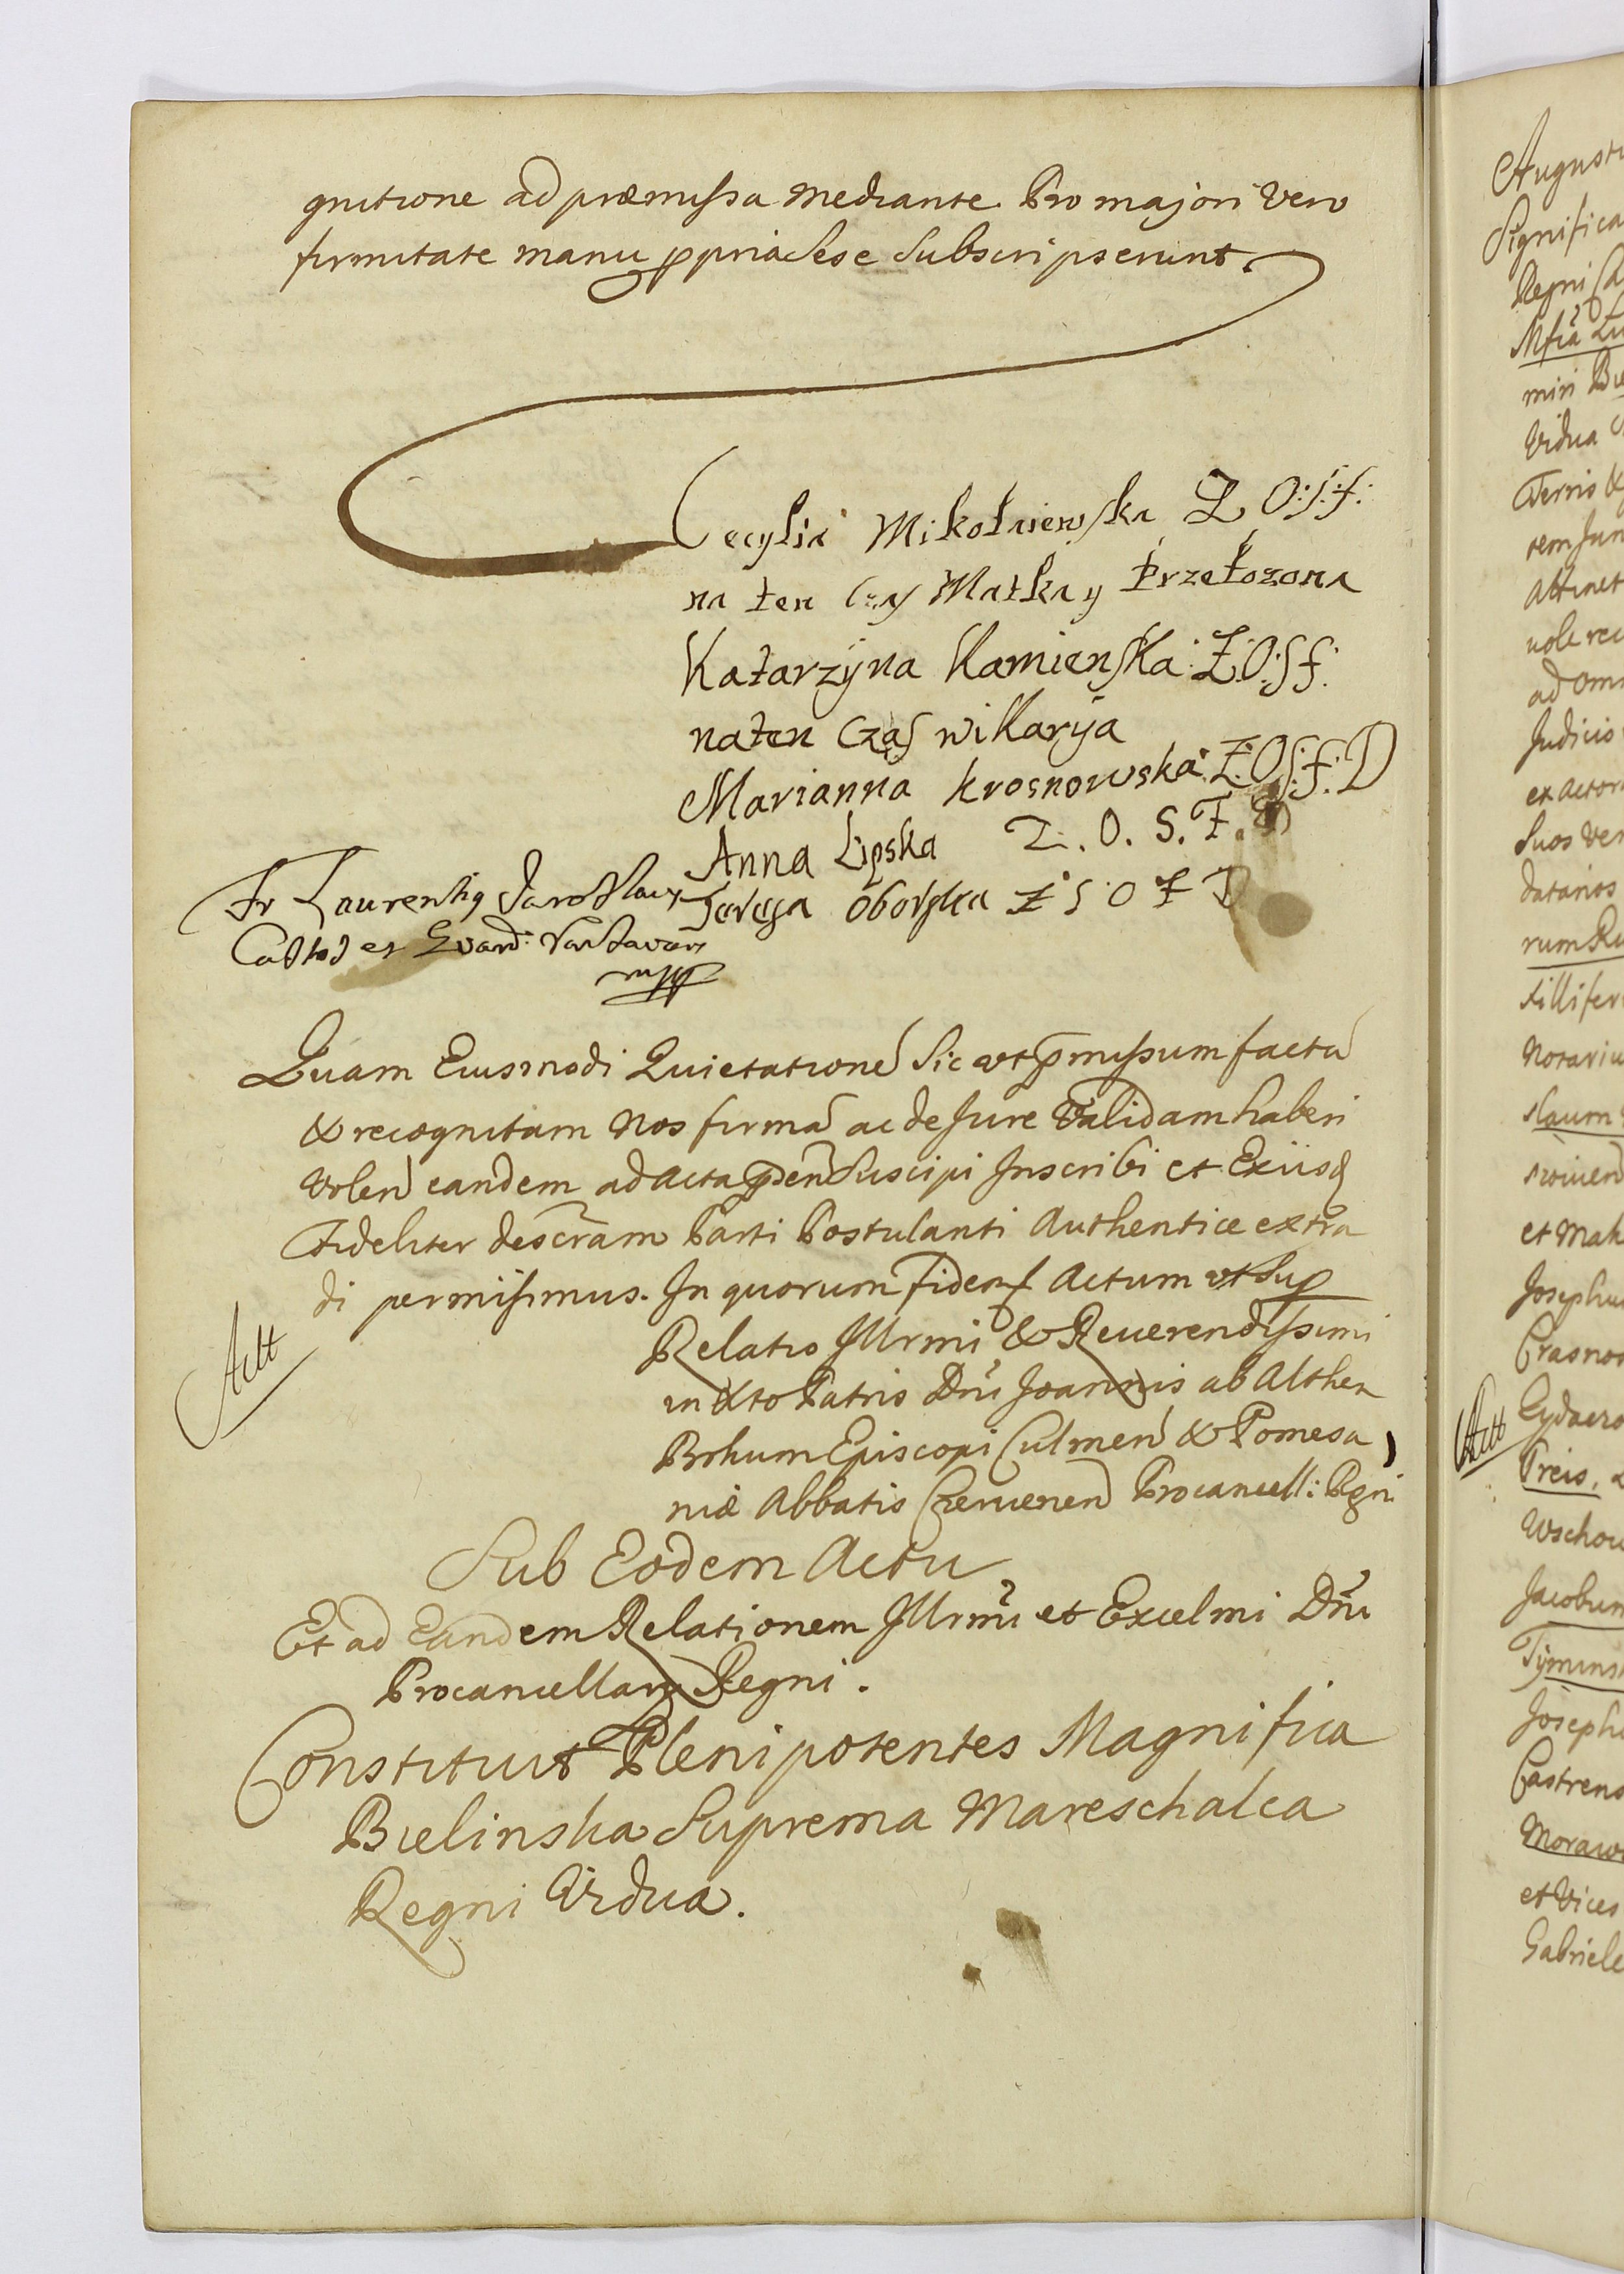 gnitione ad præmissa mediante. Pro majori vero
firmitate manu ppria sese Subscripserunt.
Cecylia Mikołaiewska Z O: S: F:
na ten Czas Matka y Przełozona
Katarzyna Kamienska Z: O: S F:
na ten Czas wikaryja
Marianna krosnowska Z: O S: F: D
Anna Lipska Z. O. S. F. D
Teresa oborska Z S O F D
Fr Laurentius
Custos et Guard: Varsavien
mpp
Quam Eiusmodi Quietatione Sic ut pmissum facta
& recognitam Nos firma ac de Jure Validam haberi
volen eandem ad Acta pden Suscipi Inscribi et Exiisd
Fideliter descram Parti Postulanti Authentice extra
di permisimus. In quorum Fidem Actum ut Sup
Relatio Illrmi & Reuerendissimi
in Xto Patris Dni Joannis ab Alther
Brhum Episcopi Culmen & Pomesa
niæ Abbatis Czeruenen Procancell: Rgni
Actt
Sub Eodem Actu
Et ad Eandem Relationem Illrmi et Excelmi Dni
Procancellarij Regni.
Constituit Plenipotentes Magnifica
Bielinska Suprema Mareschalca
Regni Vidua.
Significa
Regni
miri
Vidua
Terris &
rem
Attinet
ad
Judicio
ex
Suos
datarios
rum
Notariu
et
Josephu
Actt
Jacobum
Joseph
Castrens
et Vices
Gabriele